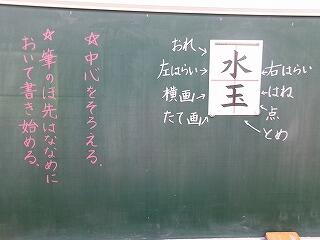 ☆中心をそろえる。
☆筆のほ先はななめに
おいて書き始める。
おれ
左はらい
横画
たて画
水
玉
右はらい
はね
点
とめ